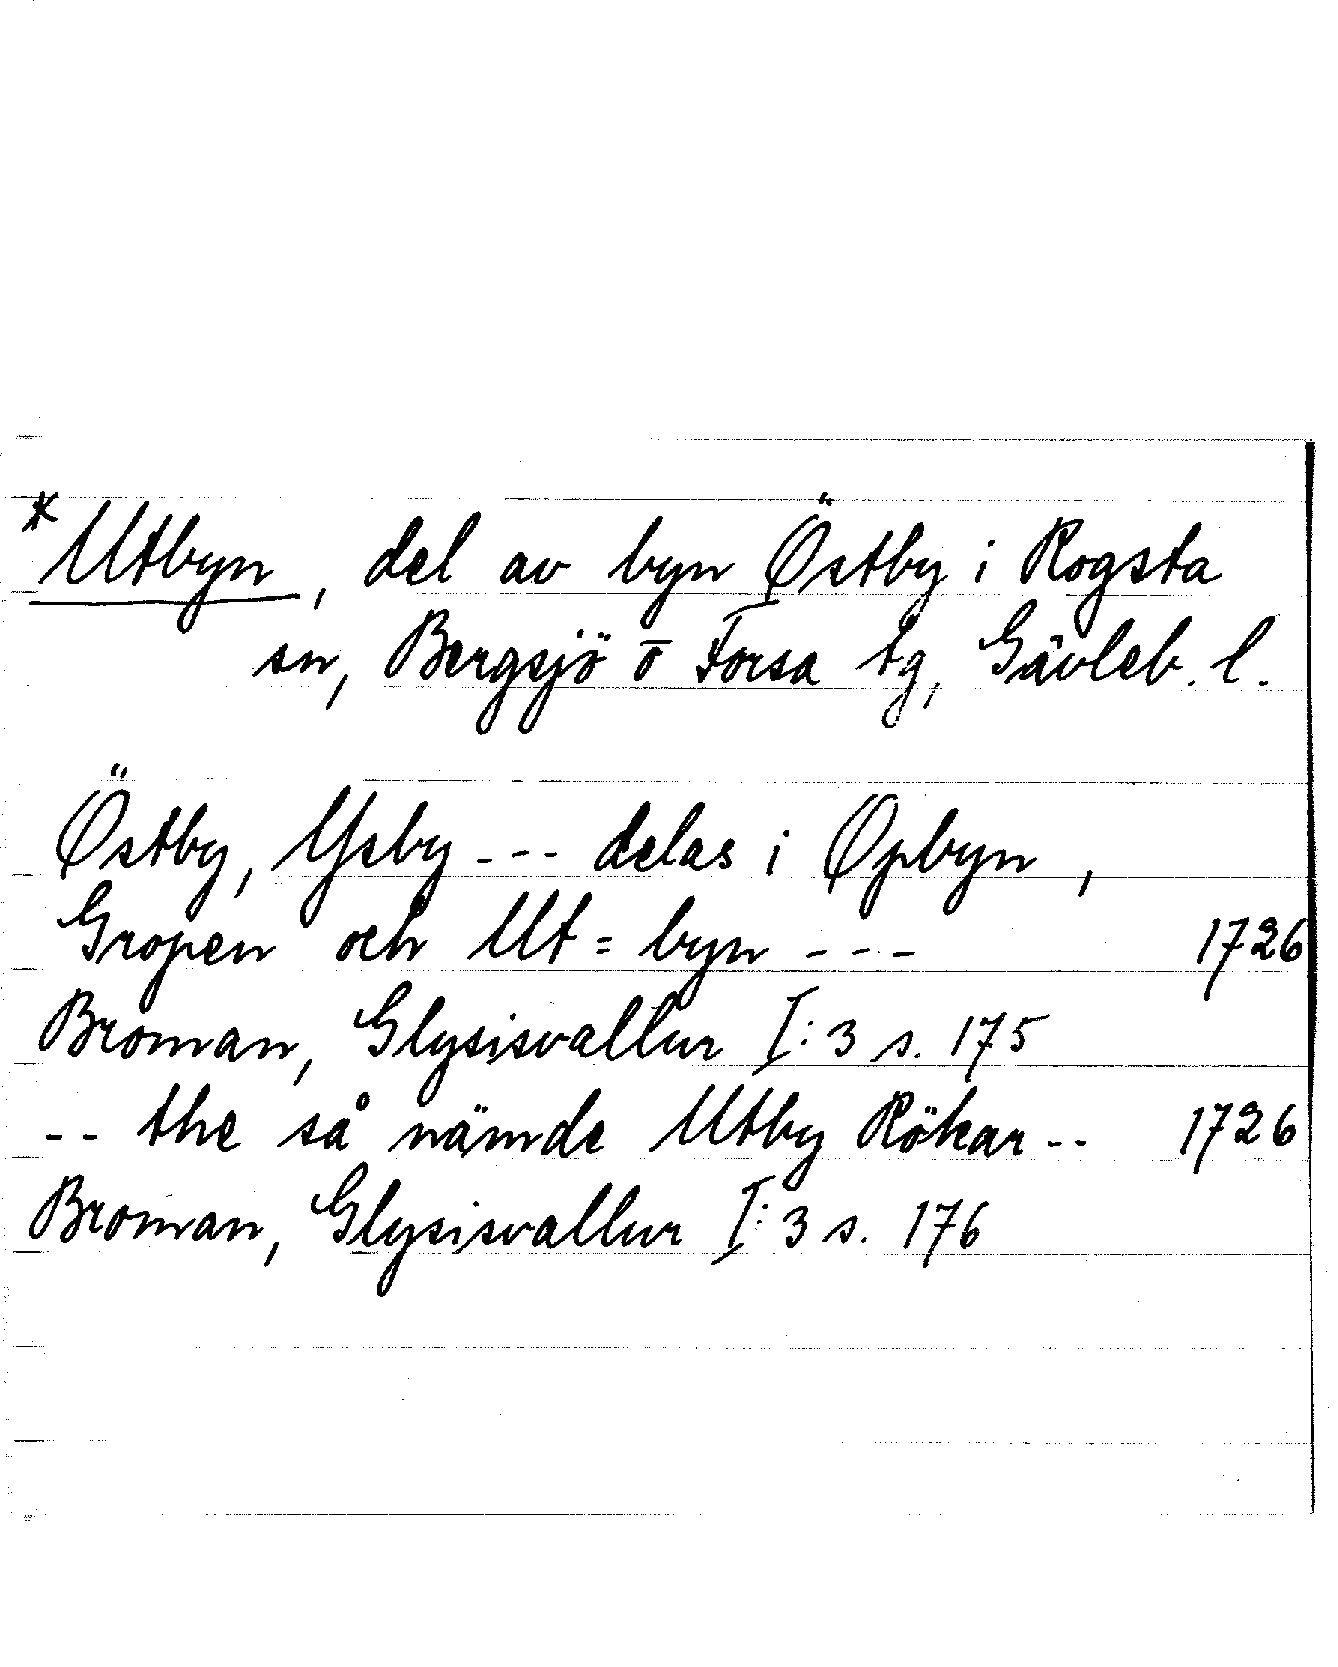 *Utbyn, del av byn Östby i Rogsta
sn, Bergsjö o Forsa tg, Gävleb. l.
Östby, Ysby --- delas i Opbyn,
Gropen och Ut=byn --- 1726
Broman, Glysisvallur I:3 s. 175
-- the så nämde Utby Rökar -- 1726
Broman, Glysisvallur I:3 s. 176